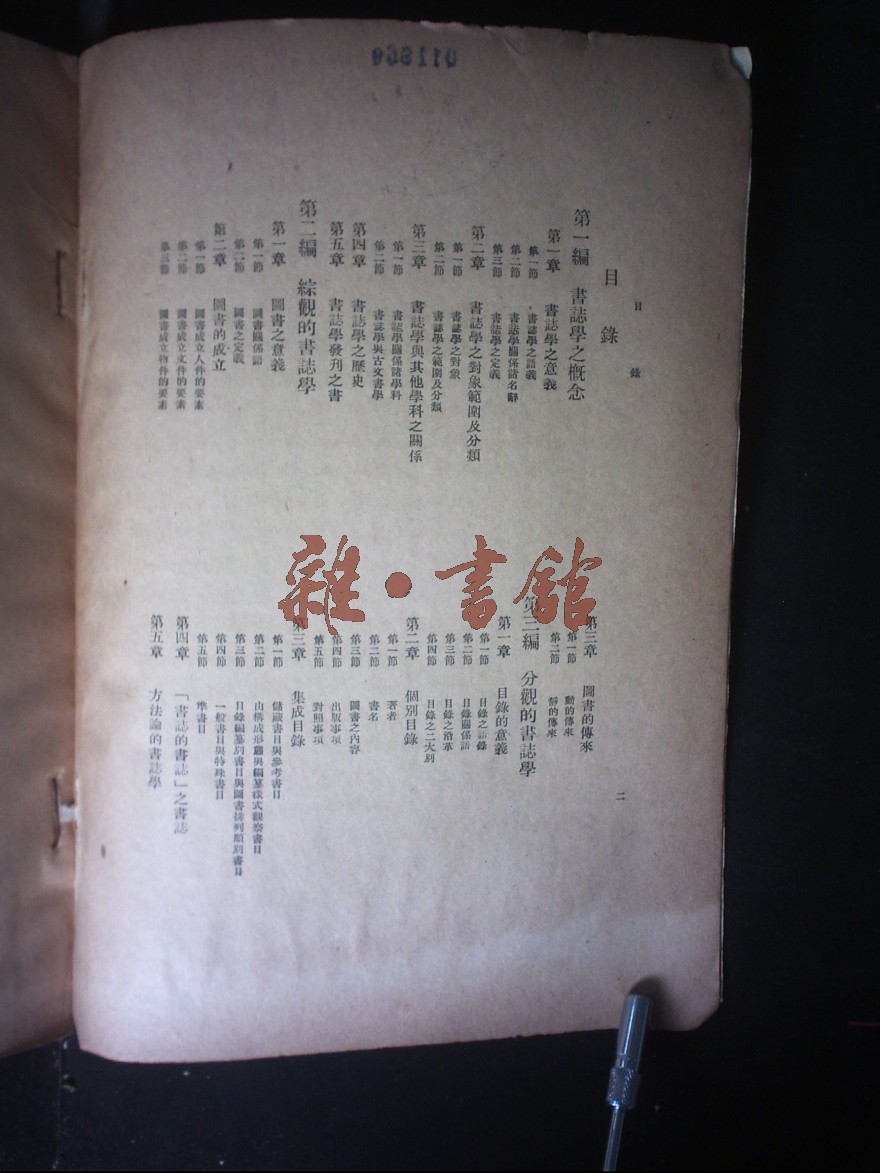 011899
目錄
目錄
第一編 書誌學之概念
第一章 書誌學之意義
第一節 書誌學之語義
第二節 書誌學關係諸名辭
第三節 書誌學之定義
第二章 書誌學之對象範圍及分類
第一節 書誌學之對象
第二節 書誌學之範圍及分類
第三章 書誌學與其他學科之關係
第一節 書誌學關係諸學科
第二節 書誌學與古文書學
第四章 書誌學之歷史
第五章 書誌學發刊之書
第二編 綜觀的書誌學
第一章 圖書之意義
第一節 圖書關係語
第二節 圖書之定義
第二章 圖書的成立
第一節 圖書成立人件的要素
第二節 圖書成立文件的要素
第三節 圖書成立物件的要素
二
第三章 圖書的傳來
第一節 動的傳來
第二節 靜的傳來
第三編 分觀的書誌學
第一章 目錄的意義
第一節 目錄之語錄
第二節 目錄關係語
第三節 目錄之沿革
第四節 目錄之二大別
第二章 個別目錄
第一節 著者
第二節 書名
第三節 圖書之內容
第四節 出版事項
第五節 對照事項
第三章 集成目錄
第一節 儲藏書目與參考書目
第二節 由構成形態與編纂樣式觀察書目
第三節 目錄編纂別書目與圖書排列順別書目
第四節 一般書目與特殊書目
第五節 準書目
第四章 「書誌的書誌」之書誌
第五章 方法論的書誌學
雜·書館